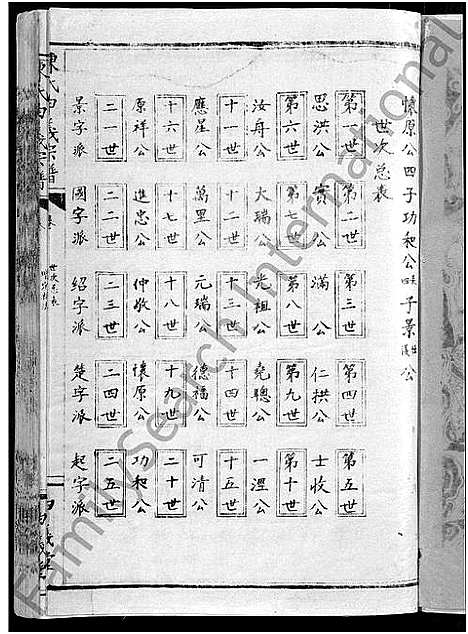 懷原公四子功和公四夫子景出茂公
世次总表
第一世 第二世 第三世 第四世 第五世
思洪公 實公 滿公 仁拱公 士收公
第六世 第七世 第八世 第九世 第十世
汝舟公 大瑞公 光祖公 堯聰公 一湮公
十一世 十二世 十三世 十四世 十五世
應星公 萬里公 元瑞公 德福公 可清公
十六世 十七世 十八世 十九世 二十世
原祥公 進忠公 仲敬公 懷原公 功和公
二一世 二二世 二三世 二四世 二五世
景字派 國字派 紹字派 楚字派 起字派
陳氏
宗譜
FamilySearch International